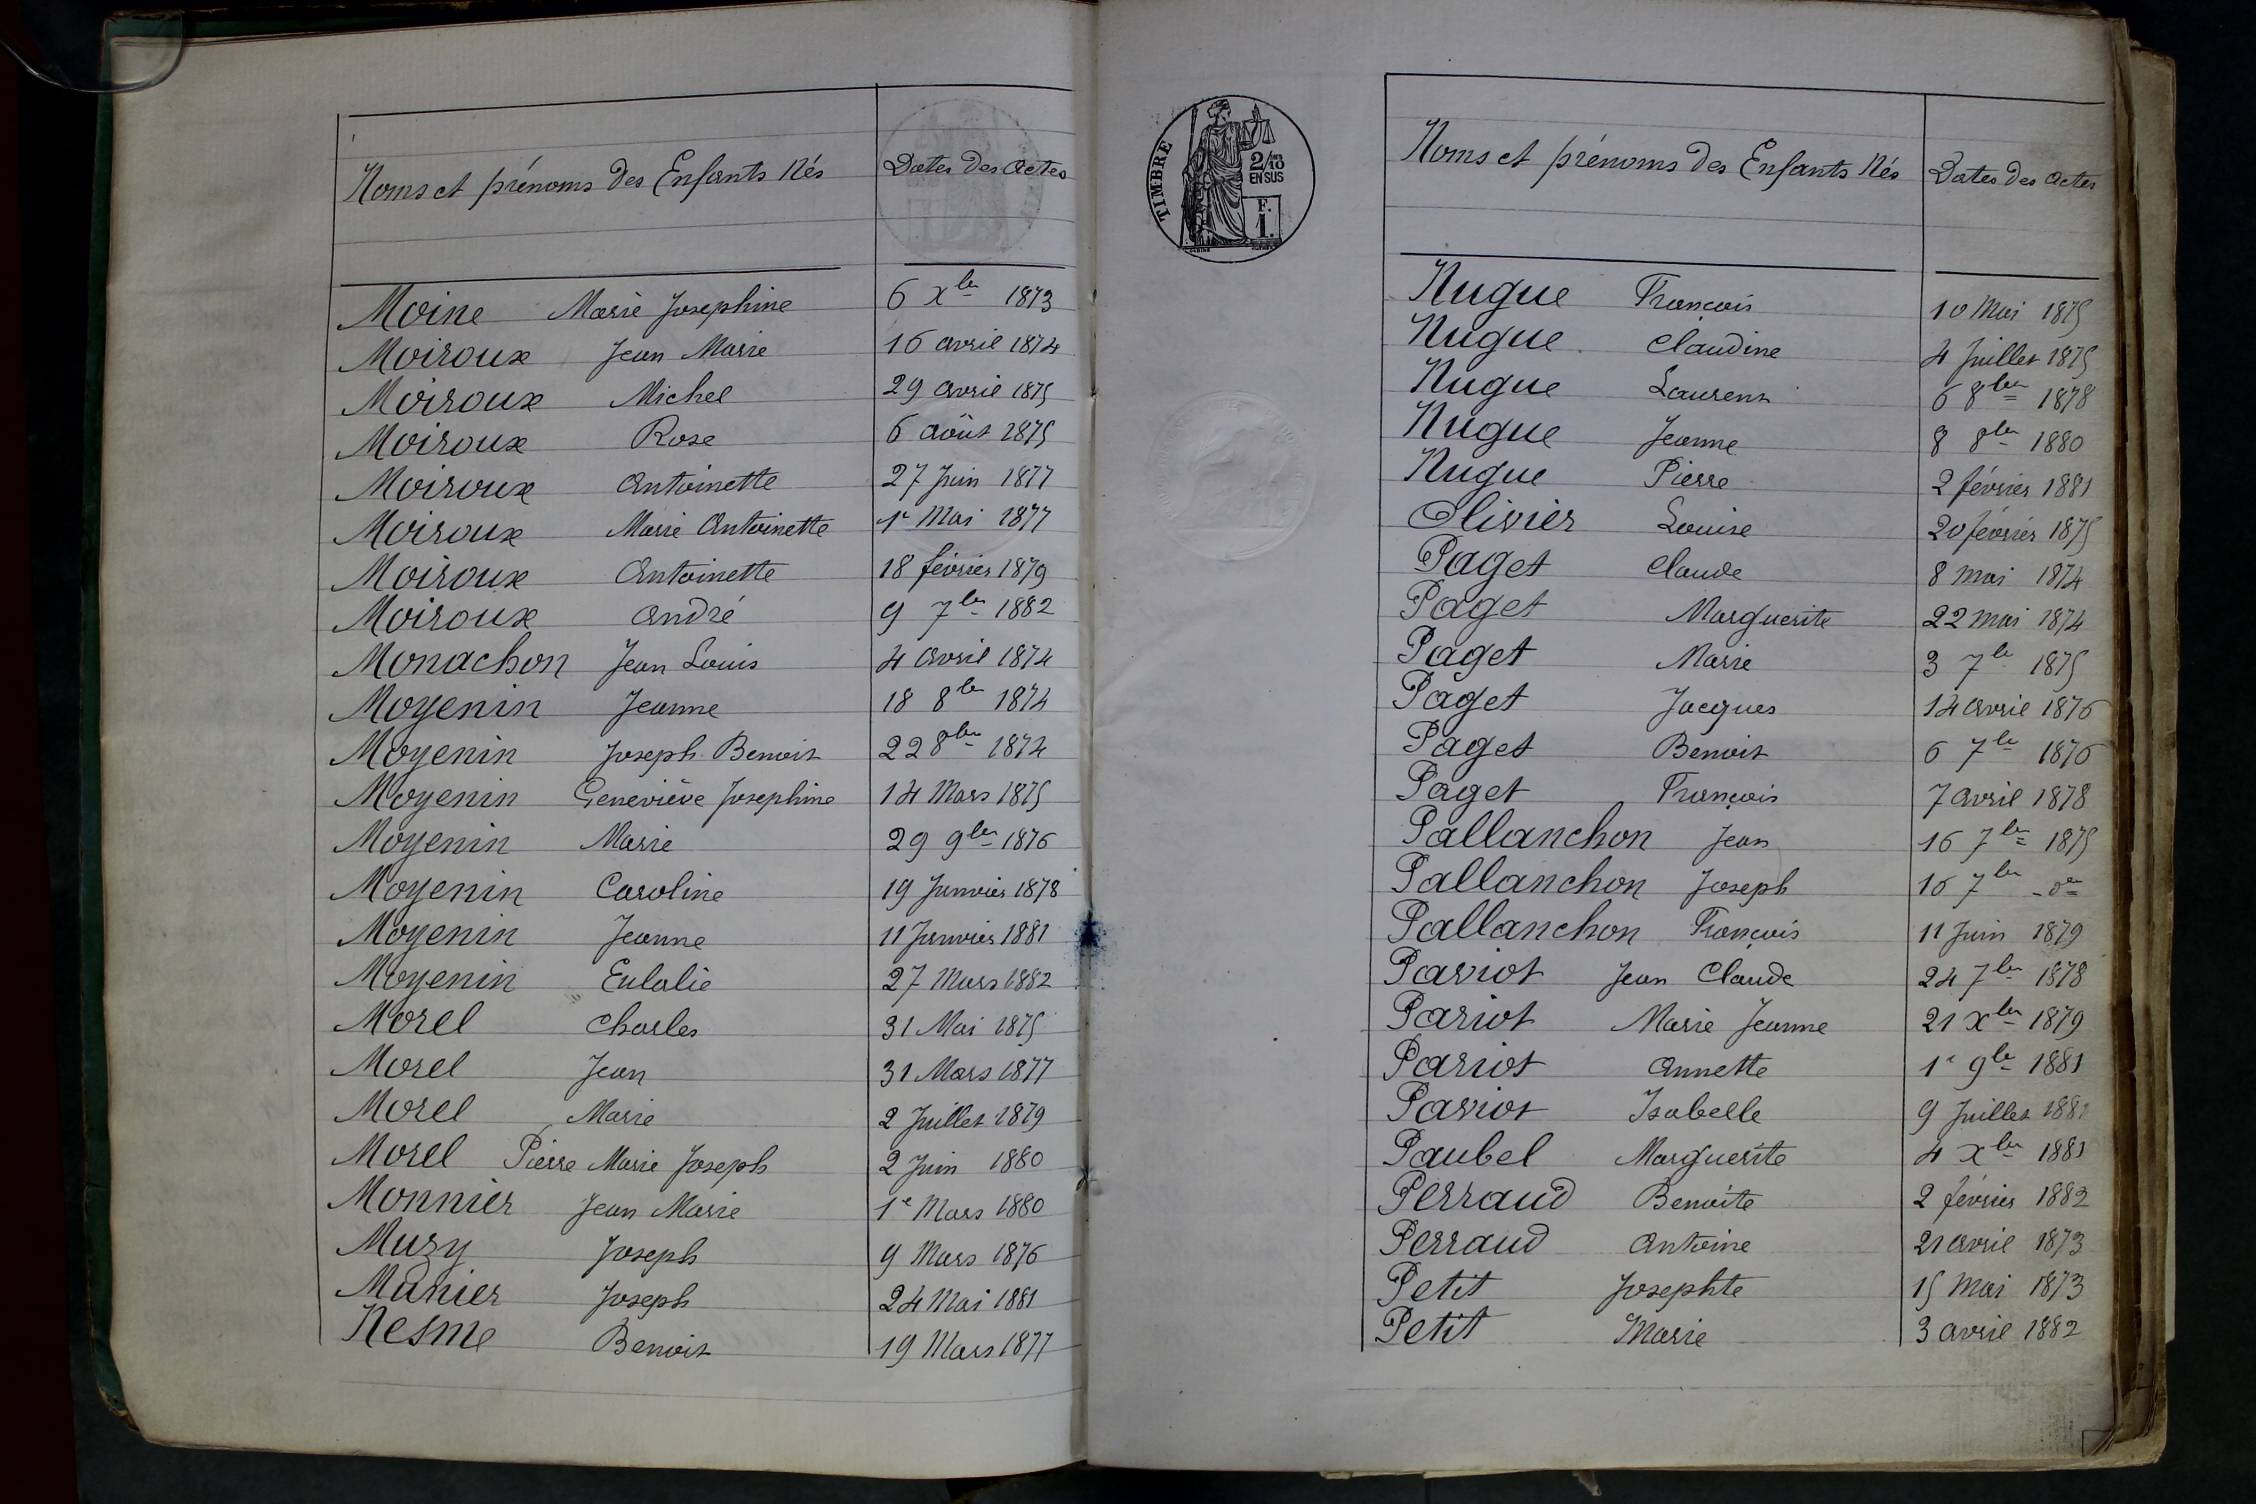 Noms et prénoms des Enfants Nés Dates des actes
Moine Marie Josephine 6 Xbre 1873
Moiroux Jean Marie 16 avril 1874
Moiroux Michel 29 avril 1875
Moiroux Rose 6 août 1875
Moiroux Antoinette 27 Juin 1877
Moiroux Marie Antoinette 1e Mai 1877
Moiroux Antoinette 18 février 1879
Moiroux André 9 7bre 1882
Monachon Jean Louis 4 avril 1874
Moyenin Jeanne 18 8bre 1874
Moyenin Joseph Benoit 22 8bre 1874
Moyenin Geneviève Josephine 14 Mars 1875
Moyenin Marie 29 9bre 1876
Moyenin Caroline 19 Janvier 1878
Moyenin Jeanne 11 Janvier 1881
Moyenin Eulalie 27 Mars 1882
Morel Charles 31 Mai 1875
Morel Jean 31 Mars 1877
Morel Marie 2 Juillet 1879
Morel Pierre Marie Joseph 2 Juin 1880
Monnier Jean Marie 1e Mars 1880
Muzy Joseph 9 Mars 1876
Munier Joseph 24 Mai 1881
Nesme Benoit 19 Mars 1877
TIMBRE
2/10 EN SUS
F. 1.
Noms et prénoms des Enfants Nés Dates des actes
Nugue François 10 Mai 1875
Nugue Claudine 4 Juillet 1875
Nugue Laurent 6 8bre 1878
Nugue Jeanne 8 8bre 1880
Nugue Pierre 2 février 1881
Olivier Louise 20 février 1875
Paget Claude 8 mai 1874
Paget Marguerite 22 mai 1874
Paget Marie 3 7bre 1875
Paget Jacques 14 avril 1876
Paget Benoit 6 7bre 1876
Paget François 7 avril 1878
Pallanchon Jean 16 7bre 1875
Pallanchon Joseph 16 7bre - do
Pallanchon François 11 Juin 1879
Pariot Jean Claude 24 7bre 1878
Pariot Marie Jeanne 21 Xbre 1879
Pariot Annette 1e 9bre 1881
Pariot Isabelle 9 Juillet
Paubel Marguerite 4 Xbre 1881
Perraud Benoite 2 février 1882
Perraud Antoine 21 avril 1873
Petit Josephte 15 Mai 1873
Petit Marie 3 avril 1882